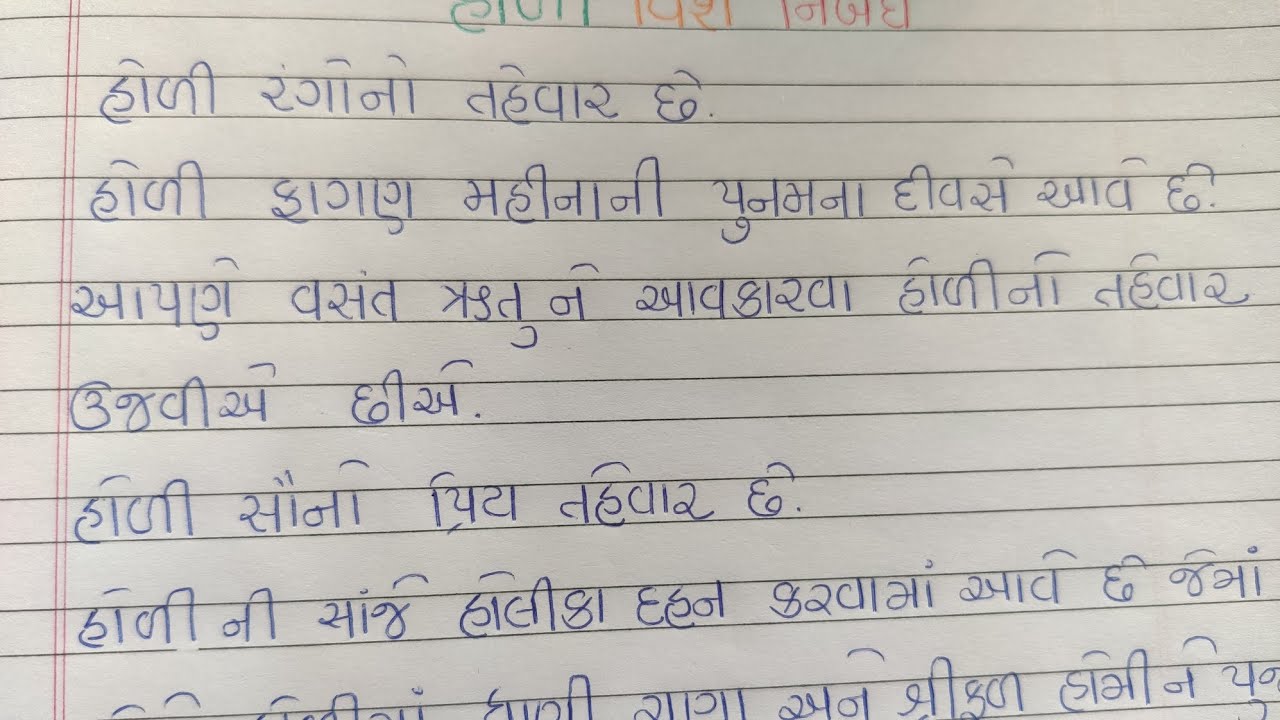 હોળી વિશે નિબંધ
હોળી રંગોનો તહેવાર છે.
હોળી ફાગણ મહીનાની પુનમના દીવસે આવે છે.
આપણે વસંત ઋતુ ને આવકારવા હોળીનો તહેવાર
ઉજવીએ છીએ.
હોળી સૌનો પ્રિય તહેવાર છે.
હોળી ની સાંજે હોલીકા દહન કરવામાં આવે છે જેમાં
ધાણી અને શ્રીફળ હોમીને